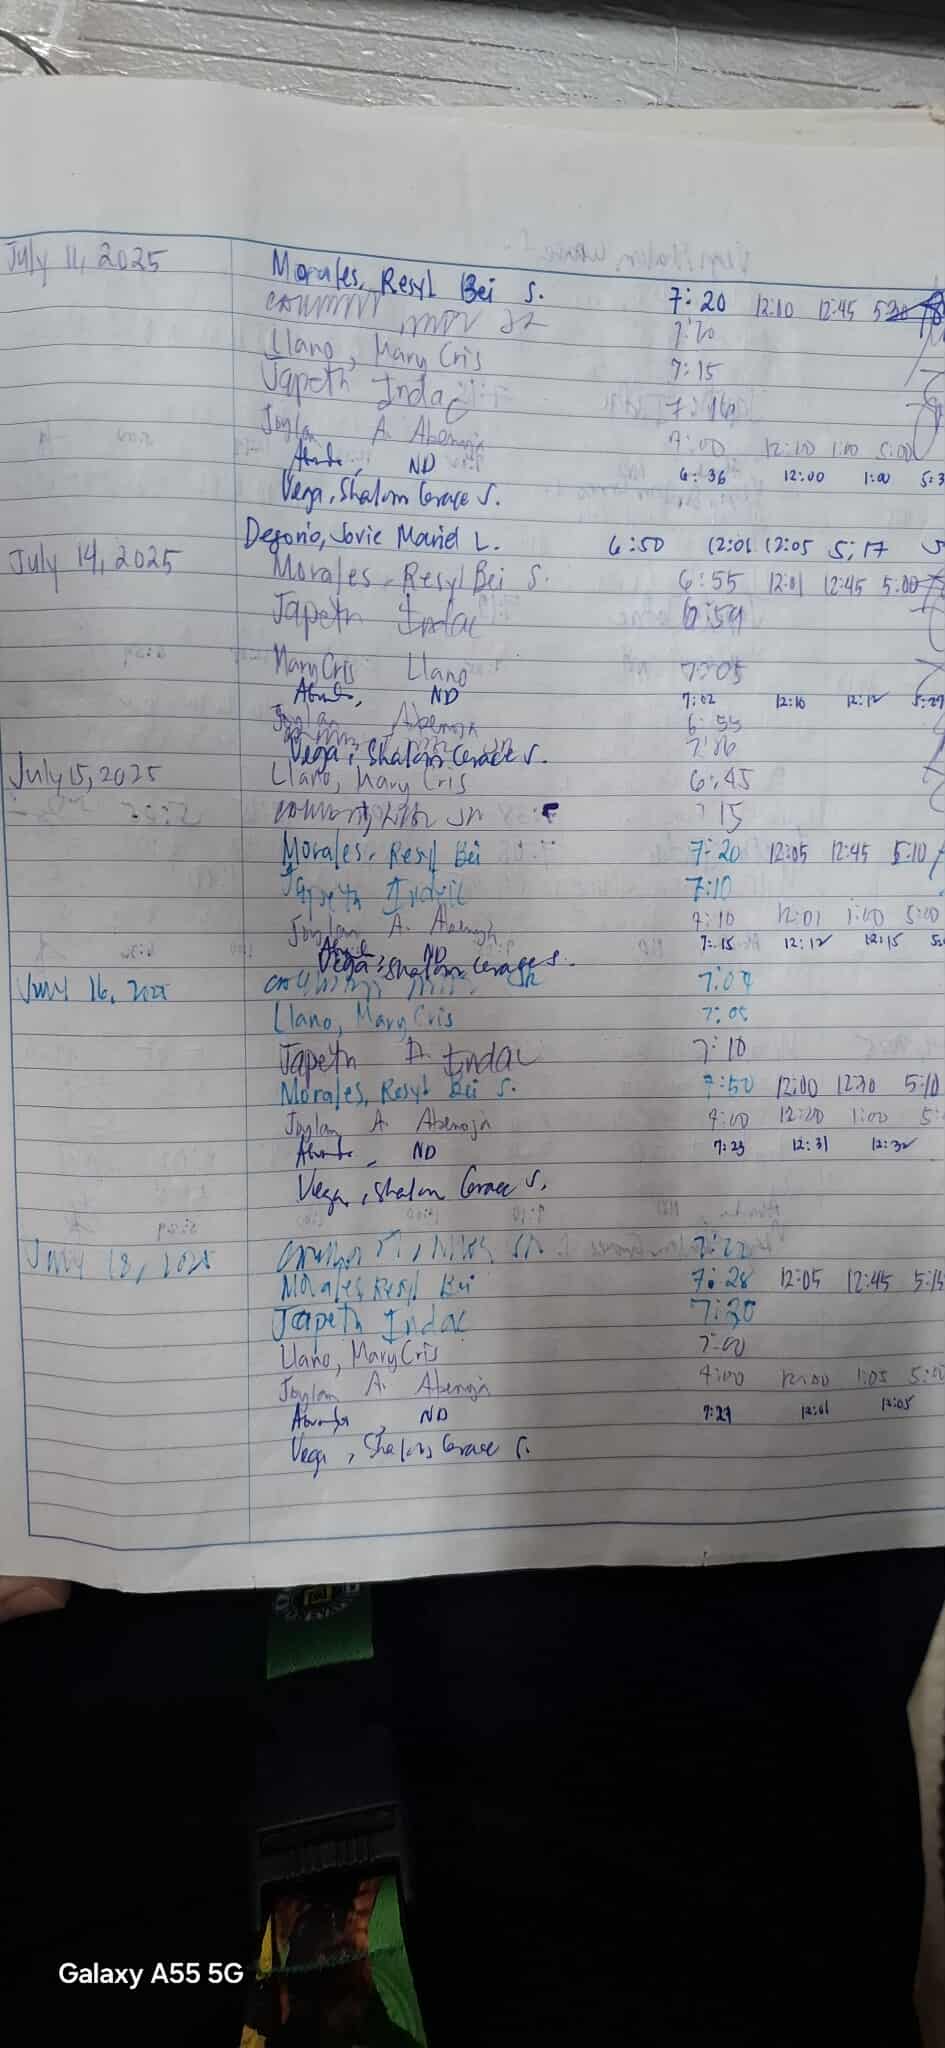 July 11, 2025 Morales, Resyl Bei S. 7:20 12:10 12:45
7:20
Llano, Mary Cris 7:15
Japeth Indac
Joylan A. Abenoja 7:00 12:10 1:00 5:00
ND 6:36 12:00 1:00 5:3
Vega, Shalom Grace S.
Degorio, Jovie Mariel L. 6:50 12:01 12:05 5:17
July 14, 2025 Morales, Resyl Bei S. 6:55 12:01 12:45 5:00
Japeth Indac 6:59
Mary Cris Llano 7:05
ND 7:02 12:10 12:12 5:29
Joylan Abenoja 6:55
Vega, Shalom Grace S.
July 15, 2025 Llano, Mary Cris 6:45
15
Morales, Resyl Bei 7:20 12:05 12:45 5:10
Japeth Indac 7:10
Joylan A. Abenoja 7:10 12:01 1:00 5:00
ND 7:15 12:12 12:15
Vega, Shalom Grace S.
July 16, 2025
Llano, Mary Cris 7:05
Japeth A. Indac 7:10
Morales, Resyl Bei S. 7:50 12:00 12:30 5:10
Joylan A. Abenoja 12:00 1:00 5:
ND 7:23 12:31 12:32
Vega, Shalom Grace S.
July 18, 2025
Morales, Resyl Bei 7:28 12:05 12:45 5:15
Japeth Indac 7:30
Llano, Mary Cris 7:00
Joylan A. Abenoja 12:00 1:05 5:00
ND 7:29 12:01 12:05
Vega, Shalom Grace S.
Galaxy A55 5G